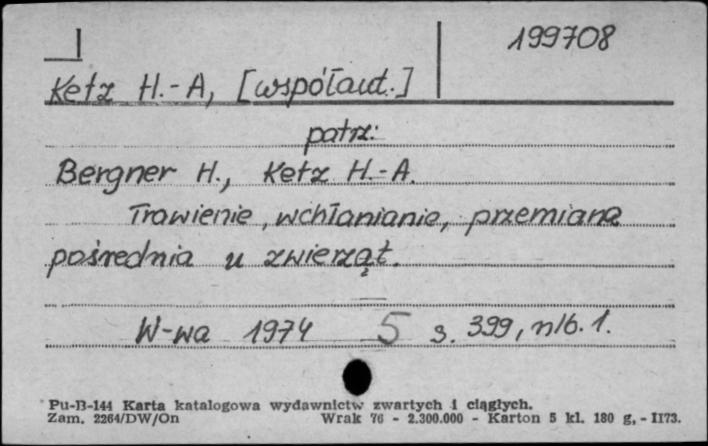 199708
Ketz H.-A, [współaut.]
patrz:
Bergner H., Ketz H.-A.
Trawienie, wchłanianie, przemiana
pośrednia u zwierząt.
W-wa 1974 5 s. 399, nlb. 1.
Pu-B-144 Karta katalogowa wydawnictw zwartych i ciągłych.
Zam. 2264/DW/On Wrak 76 - 2.300.000 - Karton 5 kl. 180 g, - II73.